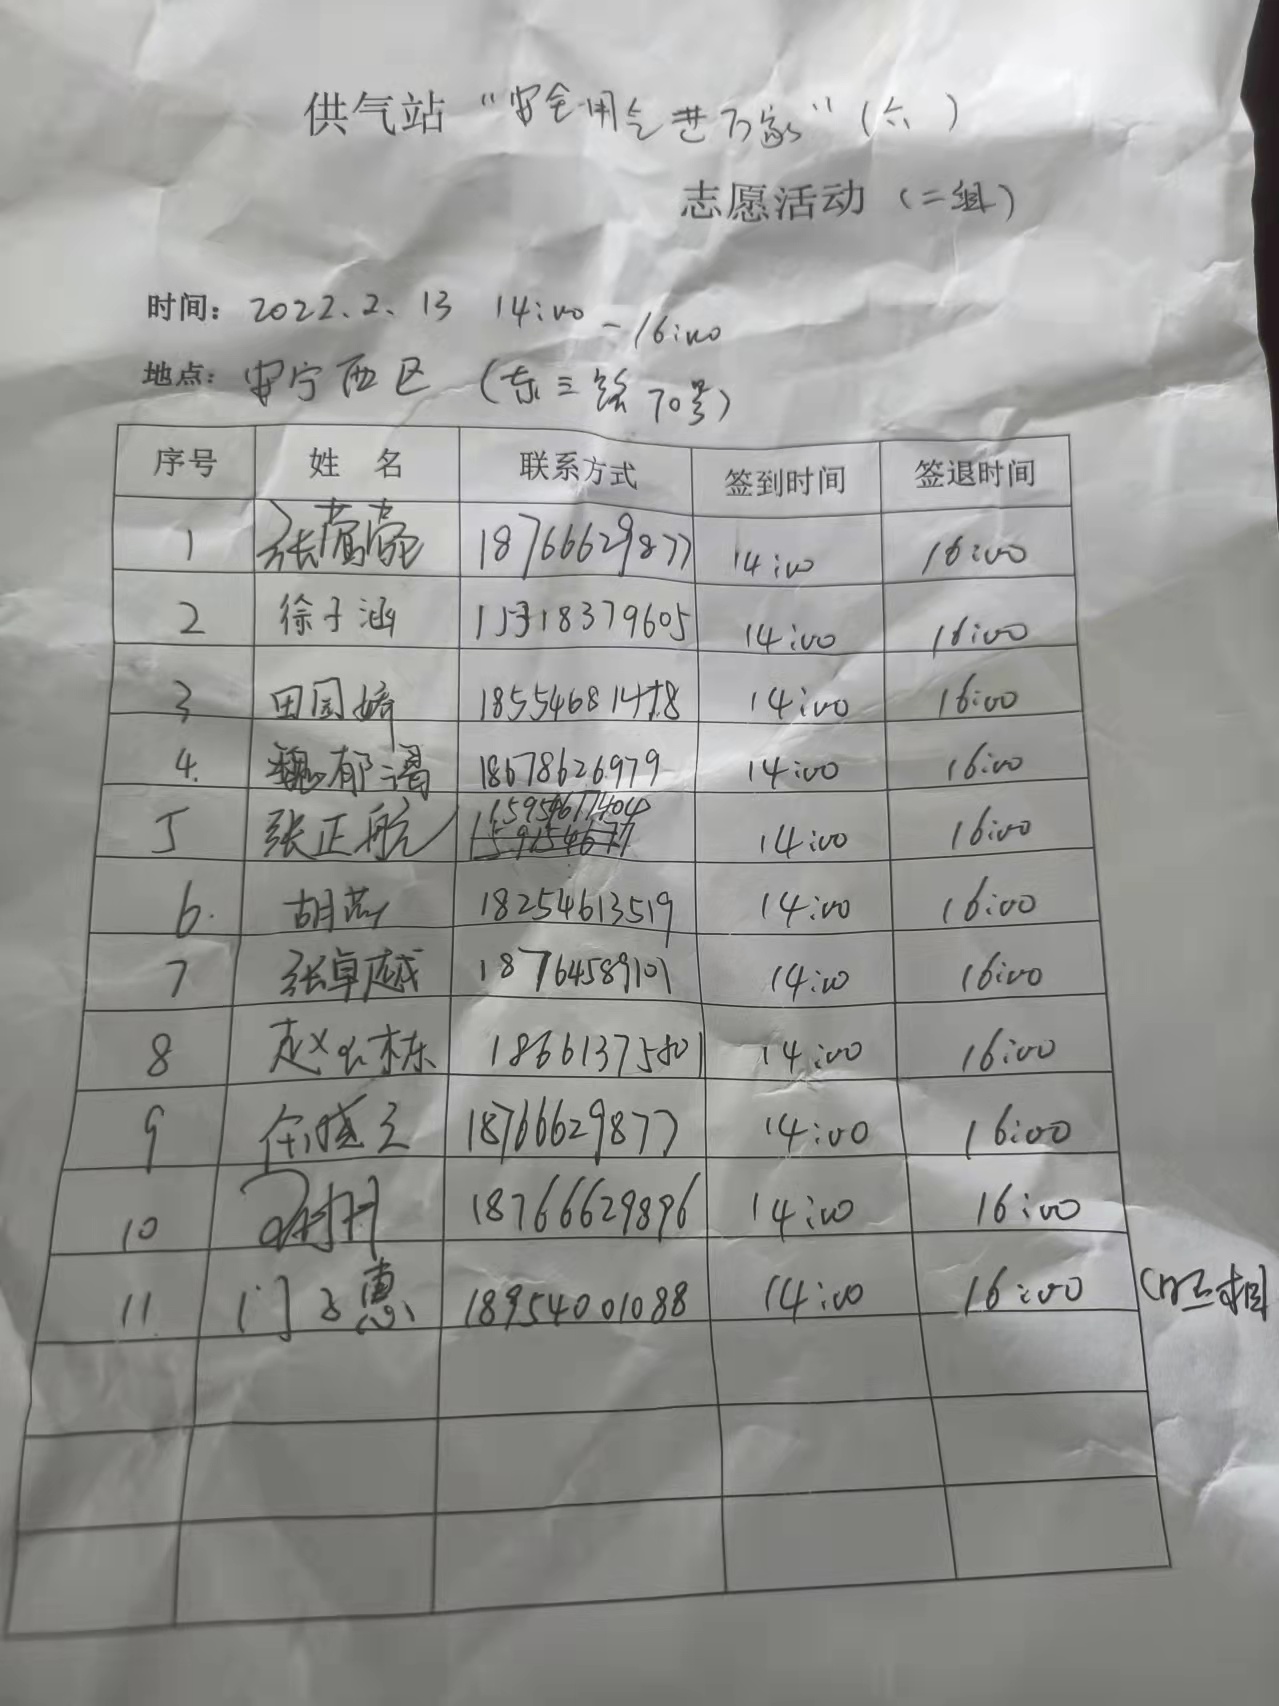 供气站 “安全用气进万家”（六）
志愿活动（二组）
时间: 2022.2.13 14:00 - 16:00
地点: 安宁西区 (东三路70号)
序号 姓 名 联系方式 签到时间 签退时间
1 张 18766629877 14:00 16:00
2 徐子涵 18379605 14:00 16:00
3 田园婷 185546814 14:00 16:00
4. 魏郁 18678626979 14:00 16:00
5 张正航 15954617404 14:00 16:00
6. 胡燕 18254613519 14:00 16:00
7 张卓越 18764589101 14:00 16:00
8 赵 栋 18661375801 14:00 16:00
9 任 18766629877 14:00 16:00
10 18766629896 14:00 16:00
11 门 惠 18954001088 14:00 16:00